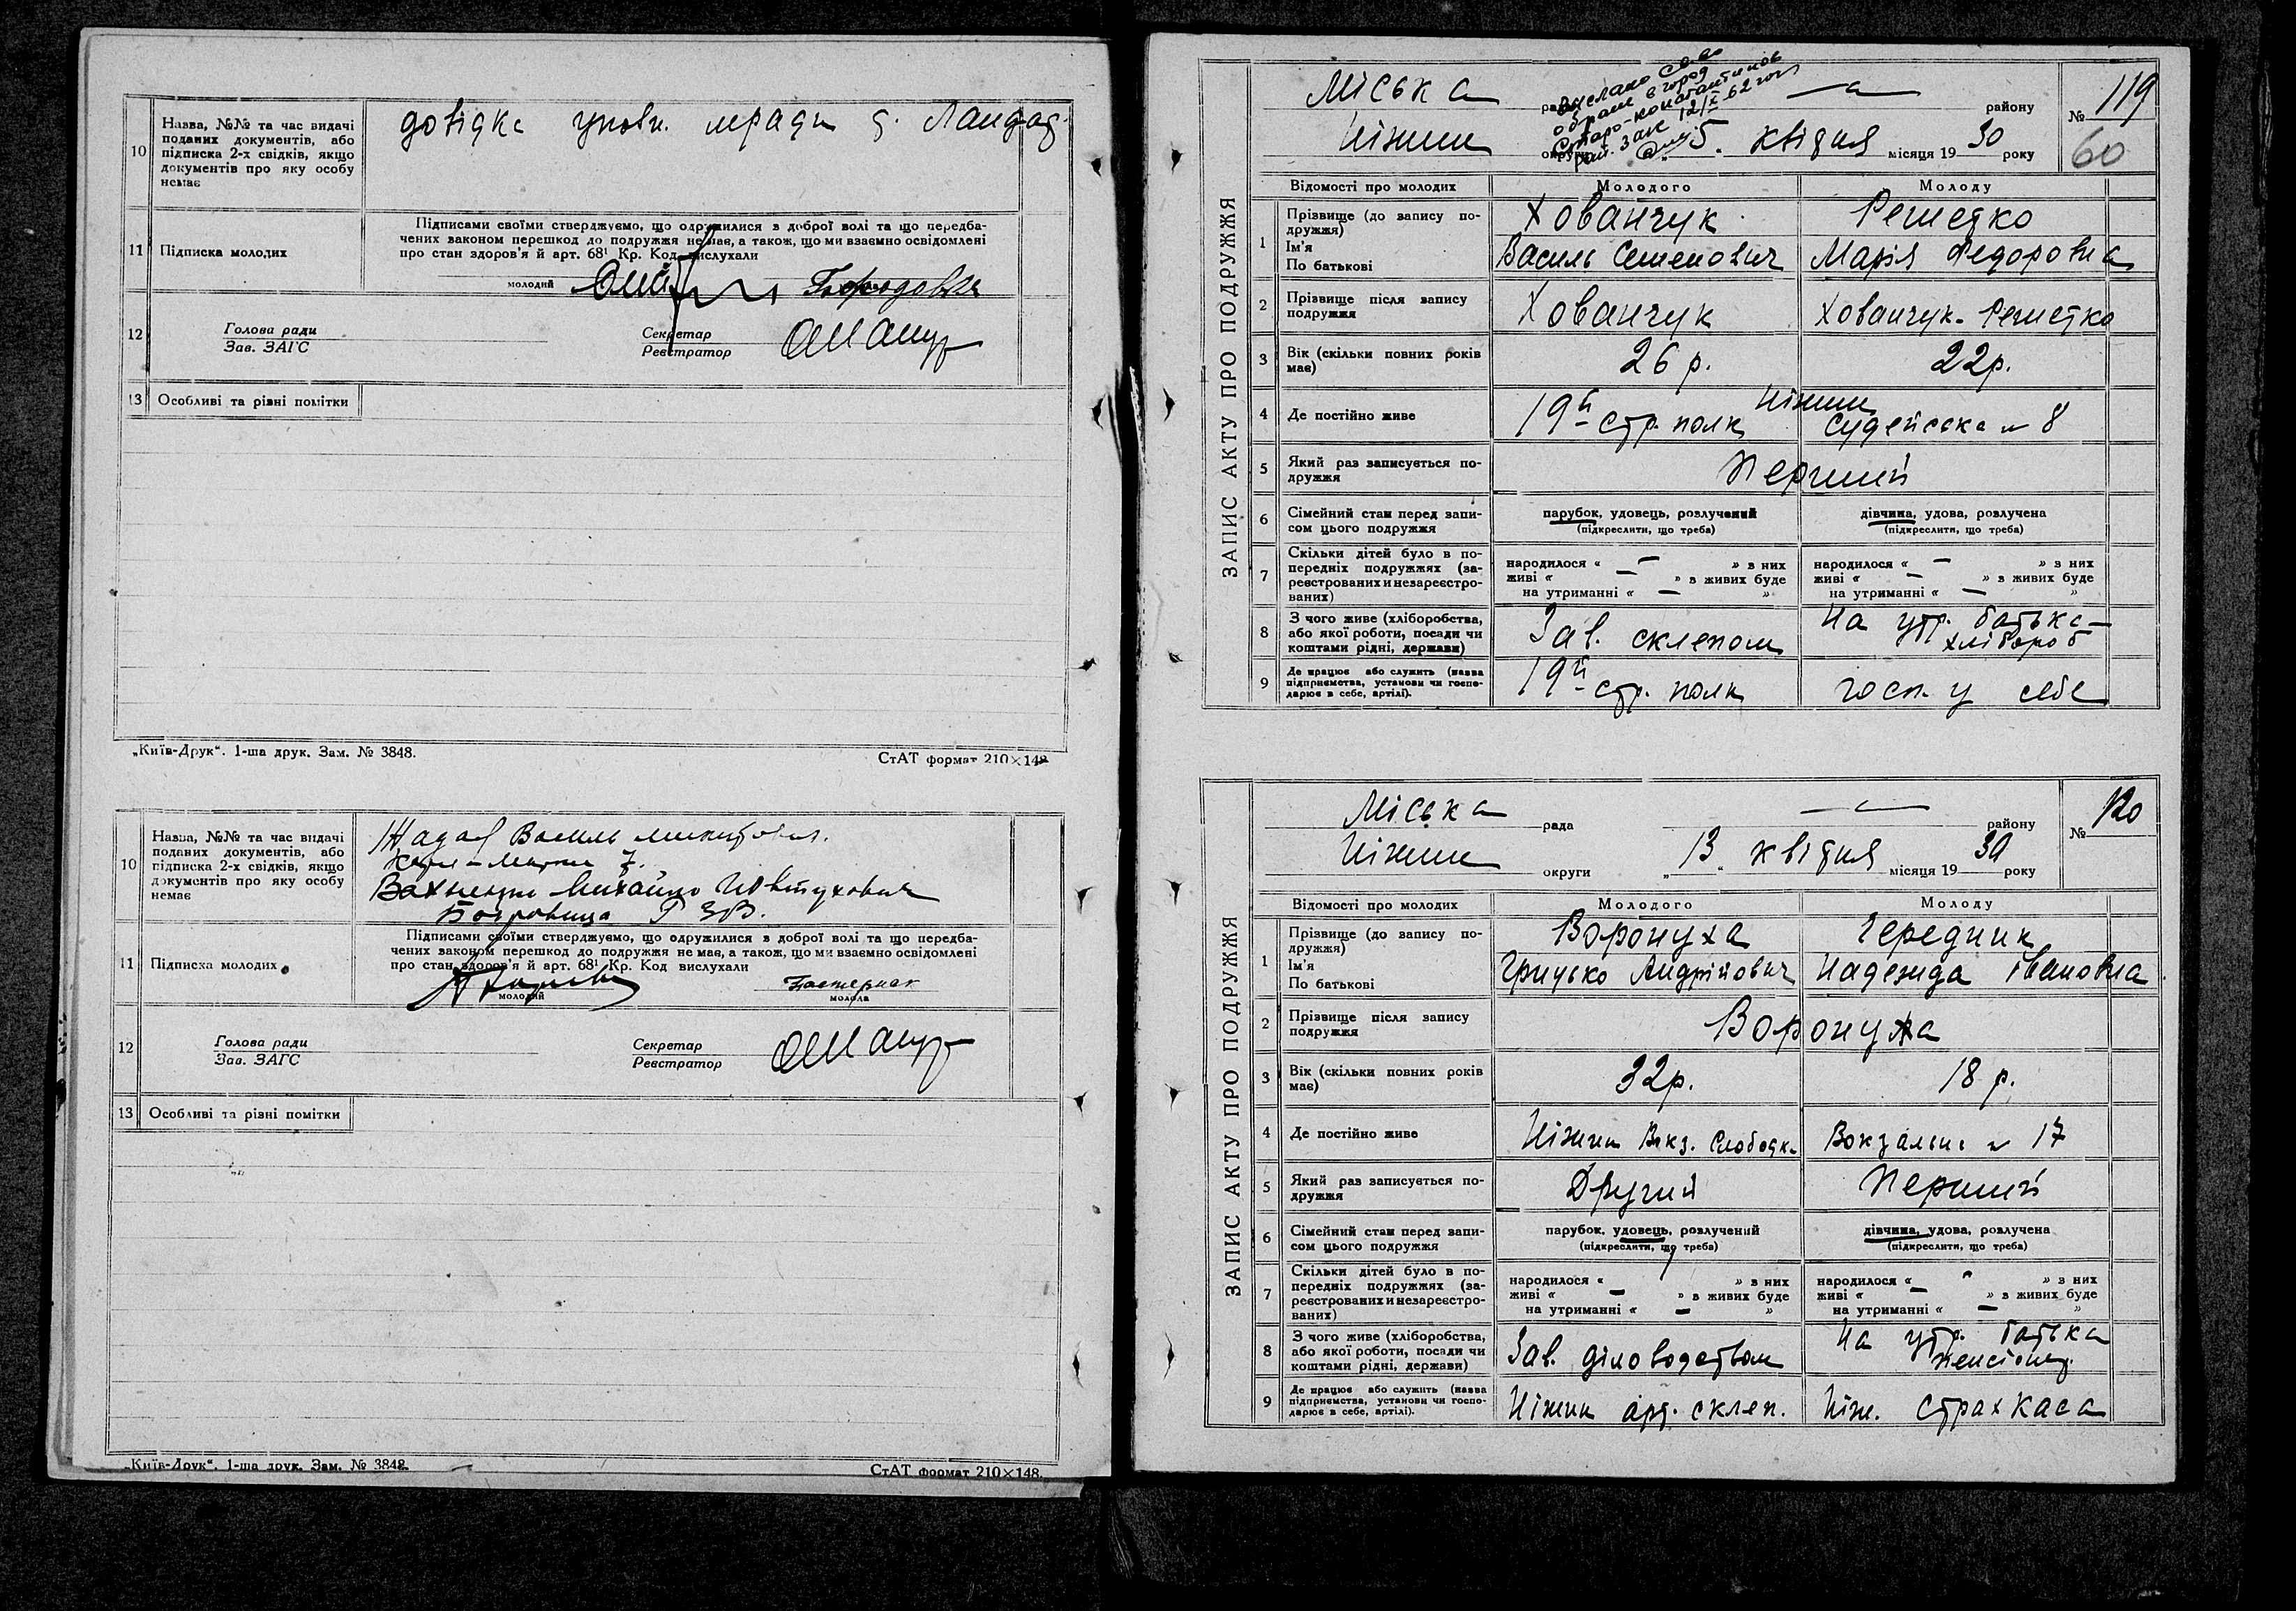 10
Назва, №№ та час видачі
поданих документів, або
підписка 2-х свідків, якщо
документів про яку особу
немає
довідка уповн. міради
11
Підписка молодих
Підписами своїми стверджуємо, що одружилися з доброї волі та що передба-
чених законом перешкод до подружжя немає, а також, що ми взаємно освідомлені
про стан здоров'я й арт. 68¹ Кр. Код вислухали
молодий
12
Голова ради
Зав. ЗАГС
Секретар
Реєстратор
13
Особливі та різні помітки
„Київ-Друк“. 1-ша друк. Зам. № 3848.
СтАТ формат 210×148
10
Назва, №№ та час видачі
поданих документів, або
підписка 2-х свідків, якщо
документів про яку особу
немає
Василь Микитович.
Карла-Маркса 7.
Михайло
11
Підписка молодих
Підписами своїми стверджуємо, що одружилися з доброї волі та що передба-
чених законом перешкод до подружжя не має, а також, що ми взаємно освідомлені
про стан здоров'я й арт. 68¹ Кр. Код вислухали
Пастернак
молодий
молода
12
Голова ради
Зав. ЗАГС
Секретар
Реєстратор
13
Особливі та різні помітки
„Київ-Друк“. 1-ша друк. Зам. № 3848.
СтАТ формат 210×148.
ЗАПИС АКТУ ПРО ПОДРУЖЖЯ
Міська рада — району
№ 119
Ніжин округи 5 квітня місяця 1930 року
60
выслано
в город
Старо-константинов
12/X 62
Відомості про молодих
Молодого
Молоду
1
Прізвище (до запису по-
дружжя)
Ім'я
По батькові
Хованчук
Василь Семенович
Решетко
Марія Федоровна
2
Прізвище після запису
подружжя
Хованчук
Хованчук-Решетко
3
Вік (скільки повних років
має)
26 р.
22р.
4
Де постійно живе
19й стр. полк
Ніжин
Судейська № 8
5
Який раз записується по-
дружжя
Перший
6
Сімейний стан перед запи-
сом цього подружжя
парубок, удовець, розлучений
(підкреслити, що треба)
дівчина, удова, розлучена
(підкреслити, що треба)
7
Скільки дітей було в по-
передніх подружжях (за-
реєстрованих и незареєстро-
ваних)
народилося « — » з них
живі « — » в живих буде
на утриманні « — »
народилося « — » з них
живі « — » в живих буде
на утриманні « — »
8
З чого живе (хліборобства,
або якої роботи, посади чи
коштами рідні, держави)
Зав. склепом
На утр. батька —
хлібороб
9
Де працює або служить (назва
підприємства, установи чи госпо-
дарює в себе, артілі).
19й стр. полк
госп. у себе
ЗАПИС АКТУ ПРО ПОДРУЖЖЯ
Міська рада — району
№ 120
Ніжин округи „13“ квітня місяця 1930 року
Відомості про молодих
Молодого
Молоду
1
Прізвище (до запису по-
дружжя)
Ім'я
По батькові
Воронуха
Грицько Андрійович
Чередник
Надежда Івановна
2
Прізвище після запису
подружжя
Воронуха
3
Вік (скільки повних років
має)
32р.
18 р.
4
Де постійно живе
Ніжин Вокз. Слободка
Вокзальна № 17
5
Який раз записується по-
дружжя
Другий
Перший
6
Сімейний стан перед запи-
сом цього подружжя
парубок, удовець, розлучений
(підкреслити, що треба)
дівчина, удова, розлучена
(підкреслити, що треба)
7
Скільки дітей було в по-
передніх подружжях (за-
реєстрованих и незареєстро-
ваних)
народилося « » з них
живі « — » в живих буде
на утриманні « — »
народилося « — » з них
живі « — » в живих буде
на утриманні « — »
8
З чого живе (хліборобства,
або якої роботи, посади чи
коштами рідні, держави)
Зав. діловодством
На утр. батька
пенсіонер.
9
Де працює або служить (назва
підприємства, установи чи госпо-
дарює в себе, артілі).
Ніжин арт. склеп.
Ніж. страхкаса